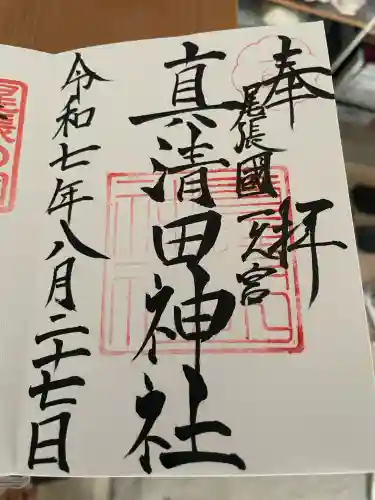 奉拝
尾張國一之宮
真清田神社
令和七年八月二十七日